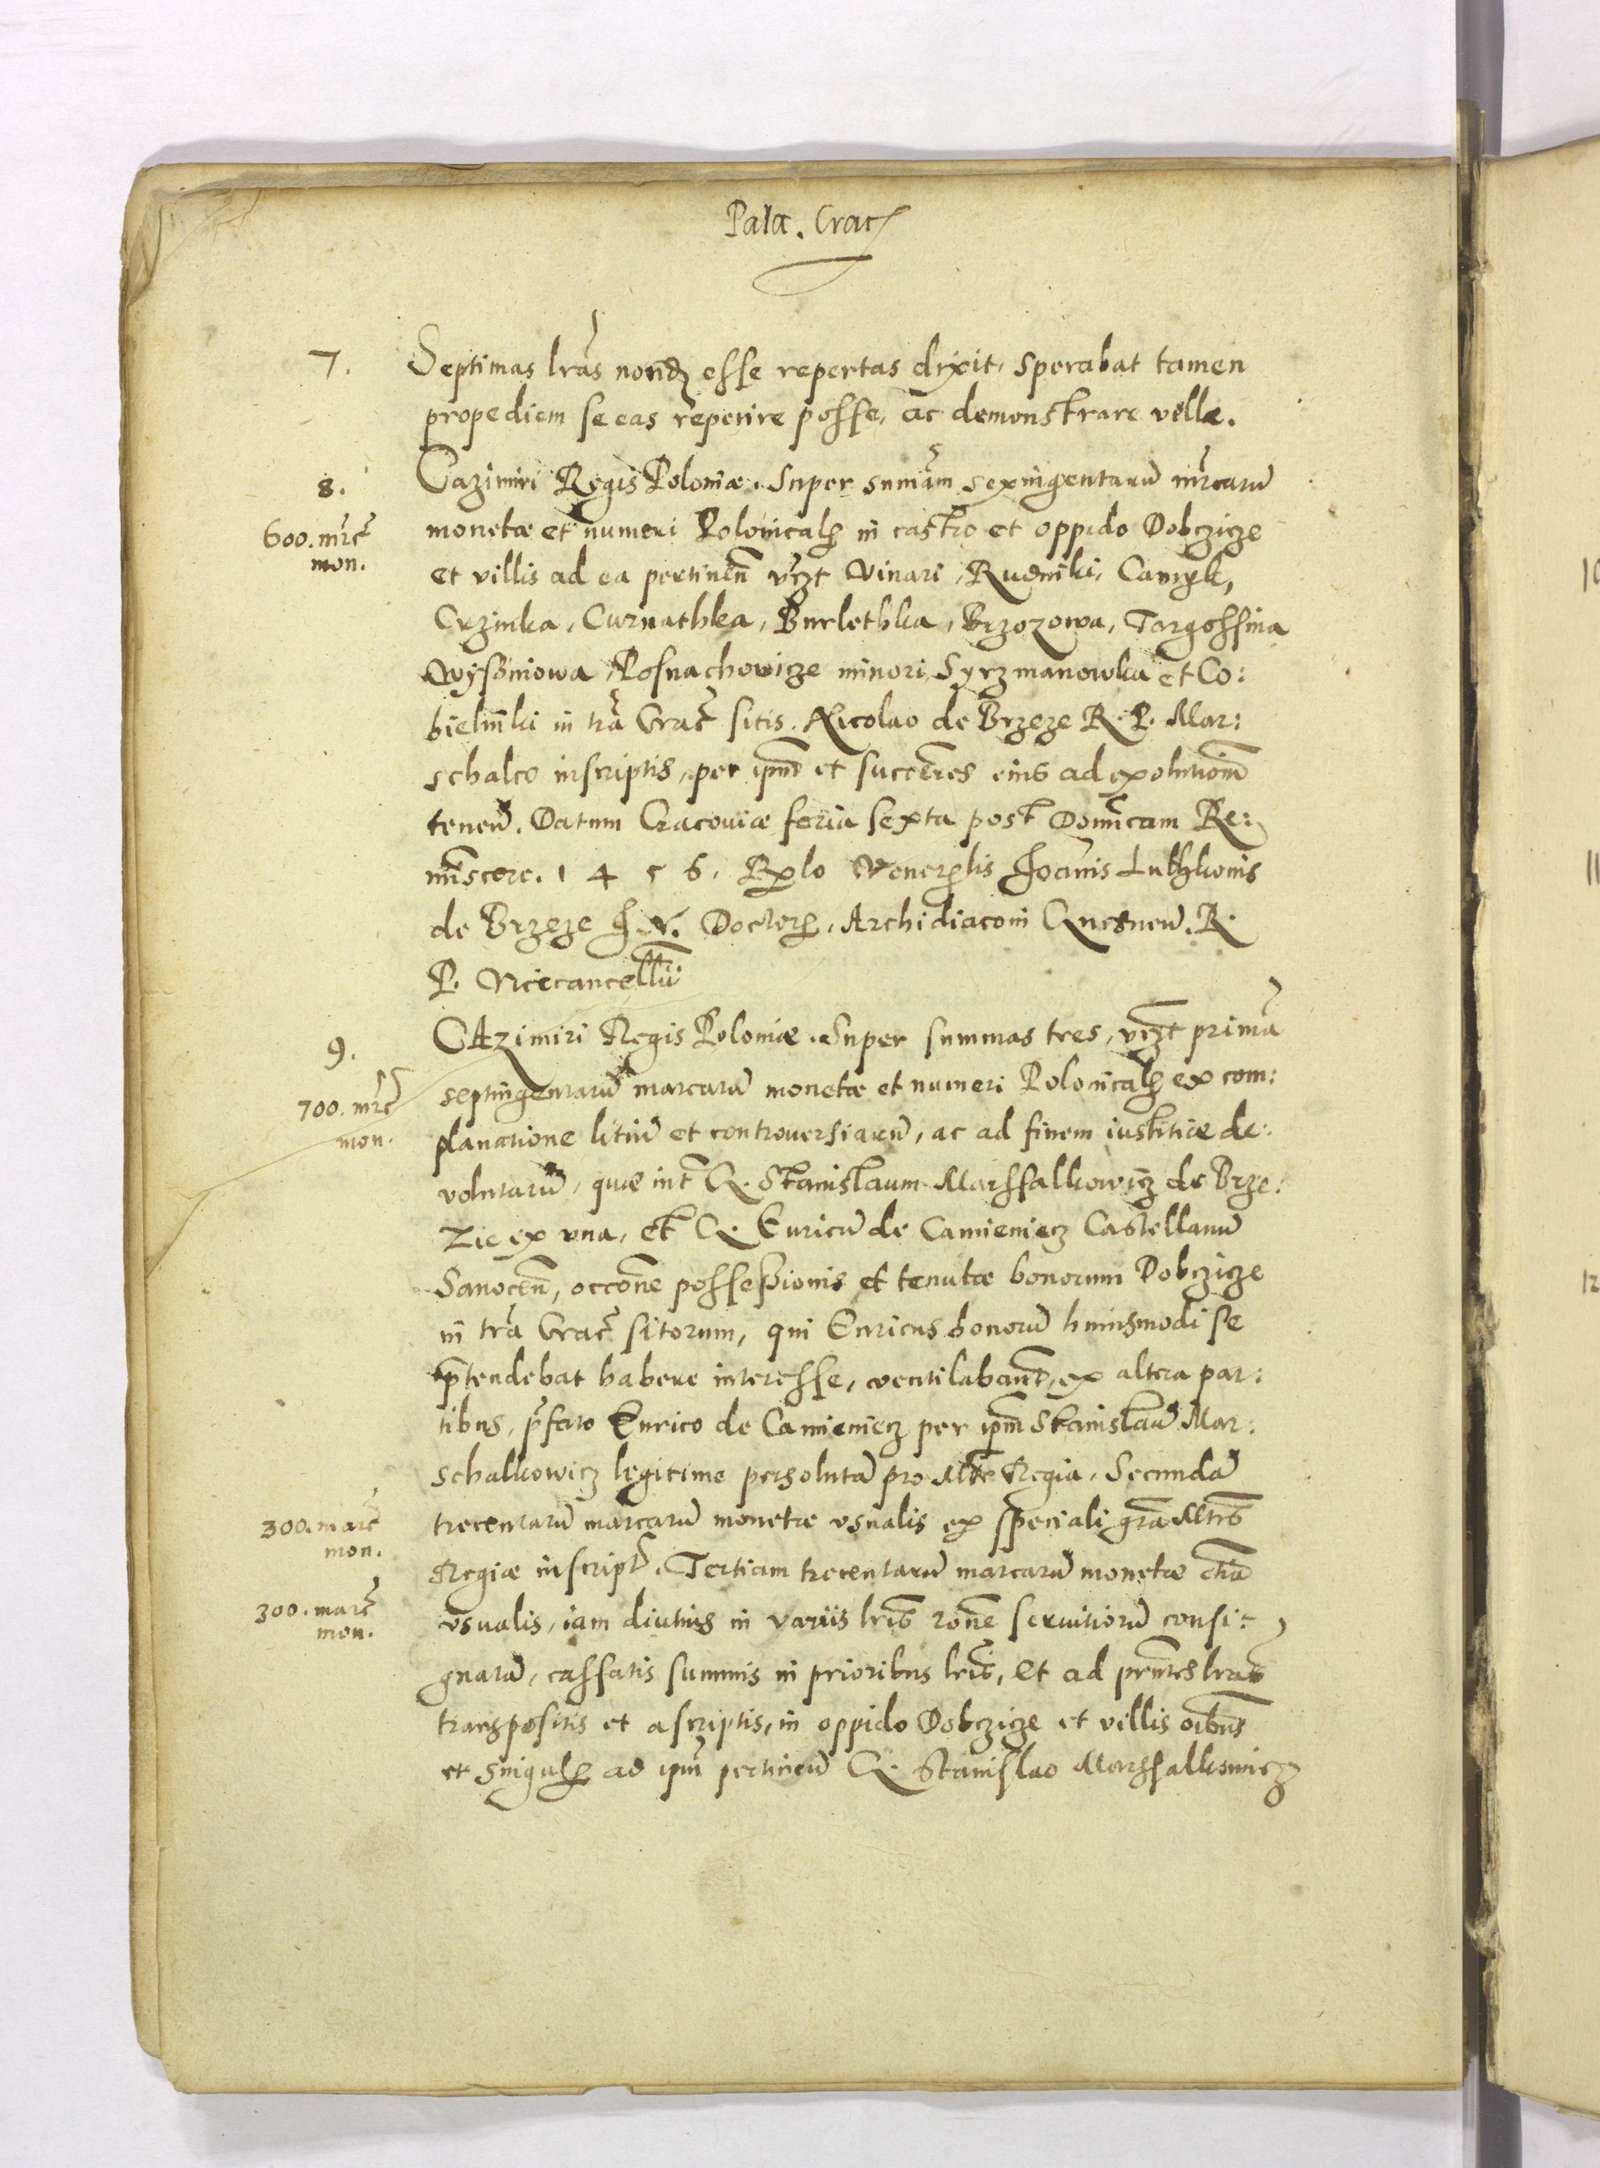 Pala. Crac
7.
Septimas lras nondū esse repertas dixit, sperabat tamen
propediem se eas reperire posse, ac demonstrare velle.
8.
Cazimiri Regis Poloniæ. Super sumam sexingentarū mrcarū
600. mrc
mon.
monetæ et numeri Polonicalis in castro et oppido Dobczicze
et villis ad ea pertinen vczt Vinari, Rudniki,
Czinka, Curnathka, Burlethka, Brzozowa, Targossina
Wysoniowa, Posnachowicze minori, Syrzmanowka et Co:
bielniki in tra Crac sitis. Nicolao de Brzeze R. P. Mar:
schalco inscriptis, per ipm et succēres eius ad exolutionē
tenen. Datum Cracoviæ feria sexta post Domicam Re:
miscere. 1 4 5 6. Rlo Venerlis Joānis Luthkonis
de Brzeze J. V. Doctoris, Archidiaconi Gnesnen. R.
P. Vicecancellu
9.
CAzimiri Regis Poloniæ. Super summas tres, vczt primā
700. mrc
mon.
septingentarū marcarū monetæ et numeri Polonicalis ex com:
planatione litiū et controversiarū, ac ad finem iustitiæ de:
volutarū, quæ int G. Stanislaum Marssalkowicz de Brze:
zie ex una, et G. Enricū de Camieniecz Castellanū
Sanocen, occone possessionis et tenutæ bonorum Dobczicze
in tra Crac sitorum, qui Enricus bonorū huiusmodi se
ptendebat habere interesse, ventilabant, ex altera par:
tibus, pfato Enrico de Camieniecz per ipm Stanislaū Mar:
schalkowicz legitime persolutā pro Mtte Regia. Secundā
300. marc
mon.
trecentarū marcarū monetæ usualis ex speciali gra Mtis
Regiæ inscript. Tertiam trecentarū marcarū monetæ etiā
300. marc
mon.
usualis, iam diutius in variis lris rone servitiorū consi:
gnatā, cassatis summis in prioribus lris, et ad pntes lras
transpositis et ascriptis, in oppido Dobczicze et villis oibus
et singulis ad ipm pertinen G. Stanislao Marssalkowicz